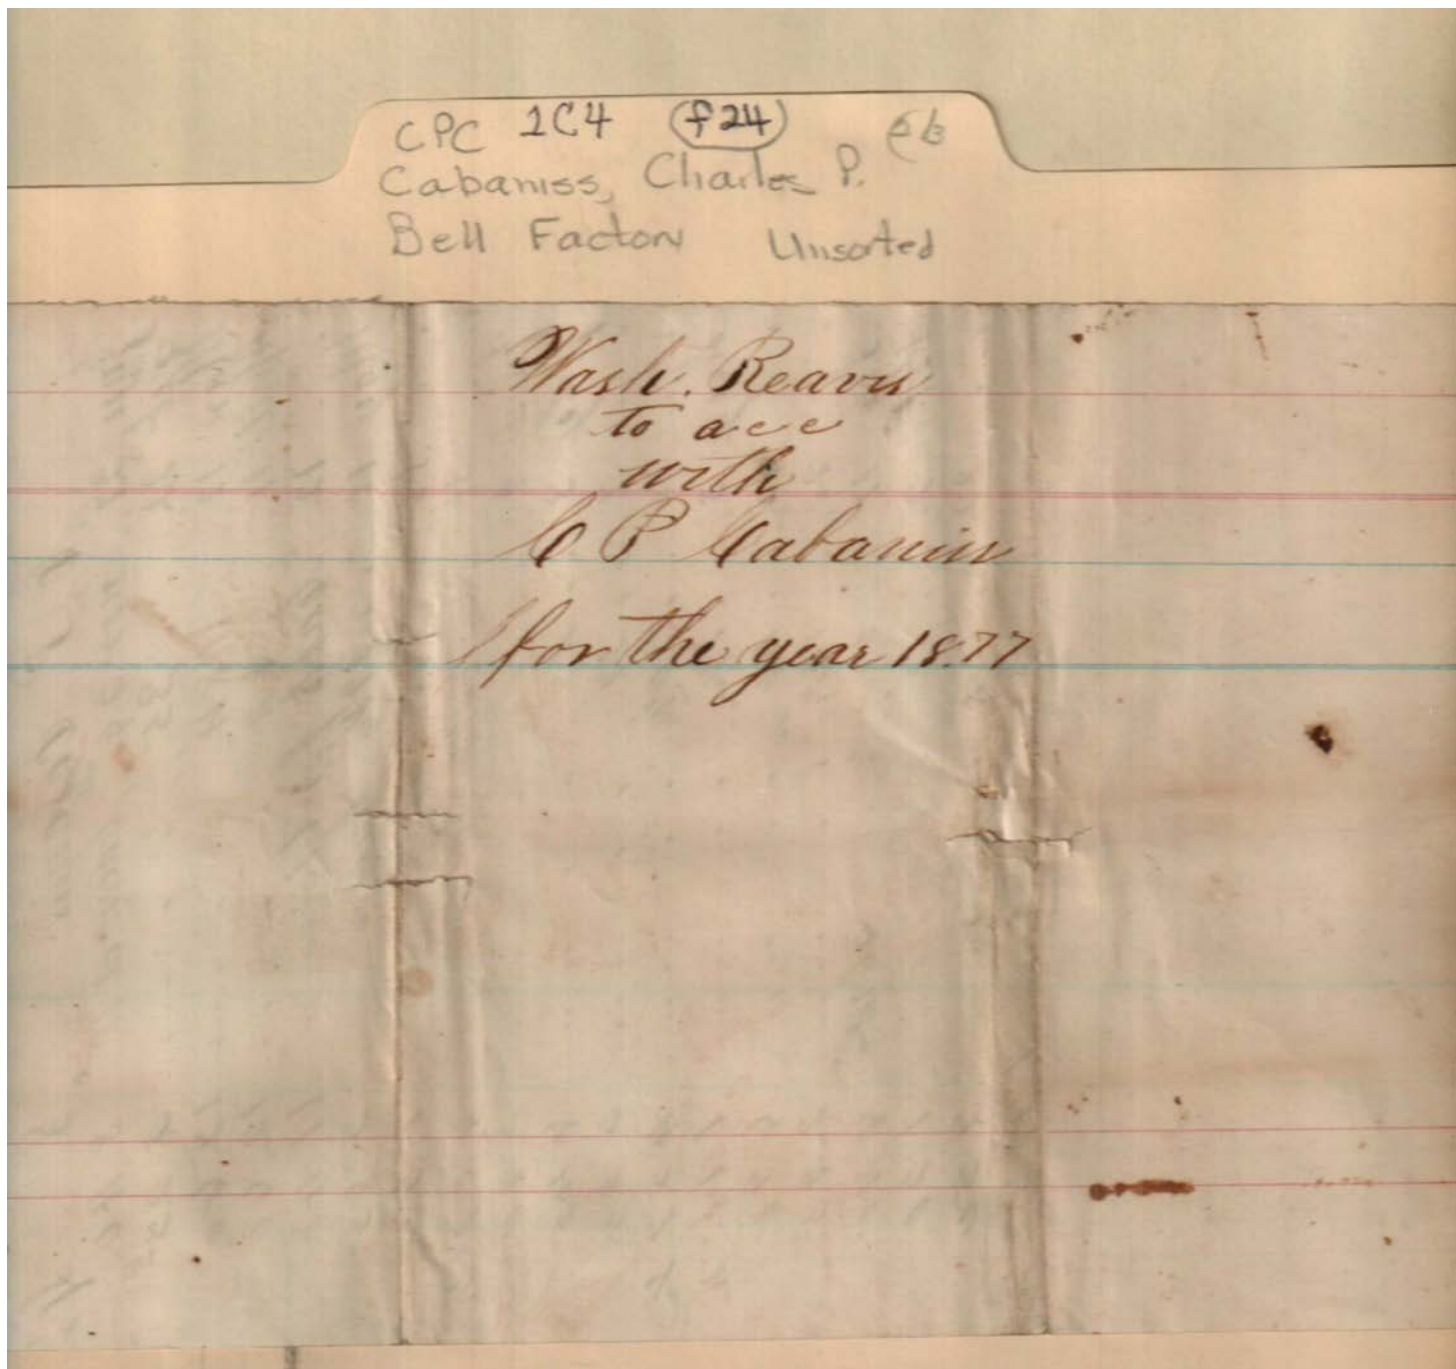 CPC 1C4 f24
Cabaniss, Charles P.
Bell Factory Unsorted
Wash. Reavis
to acc
with
C P Cabaniss
for the year 1877